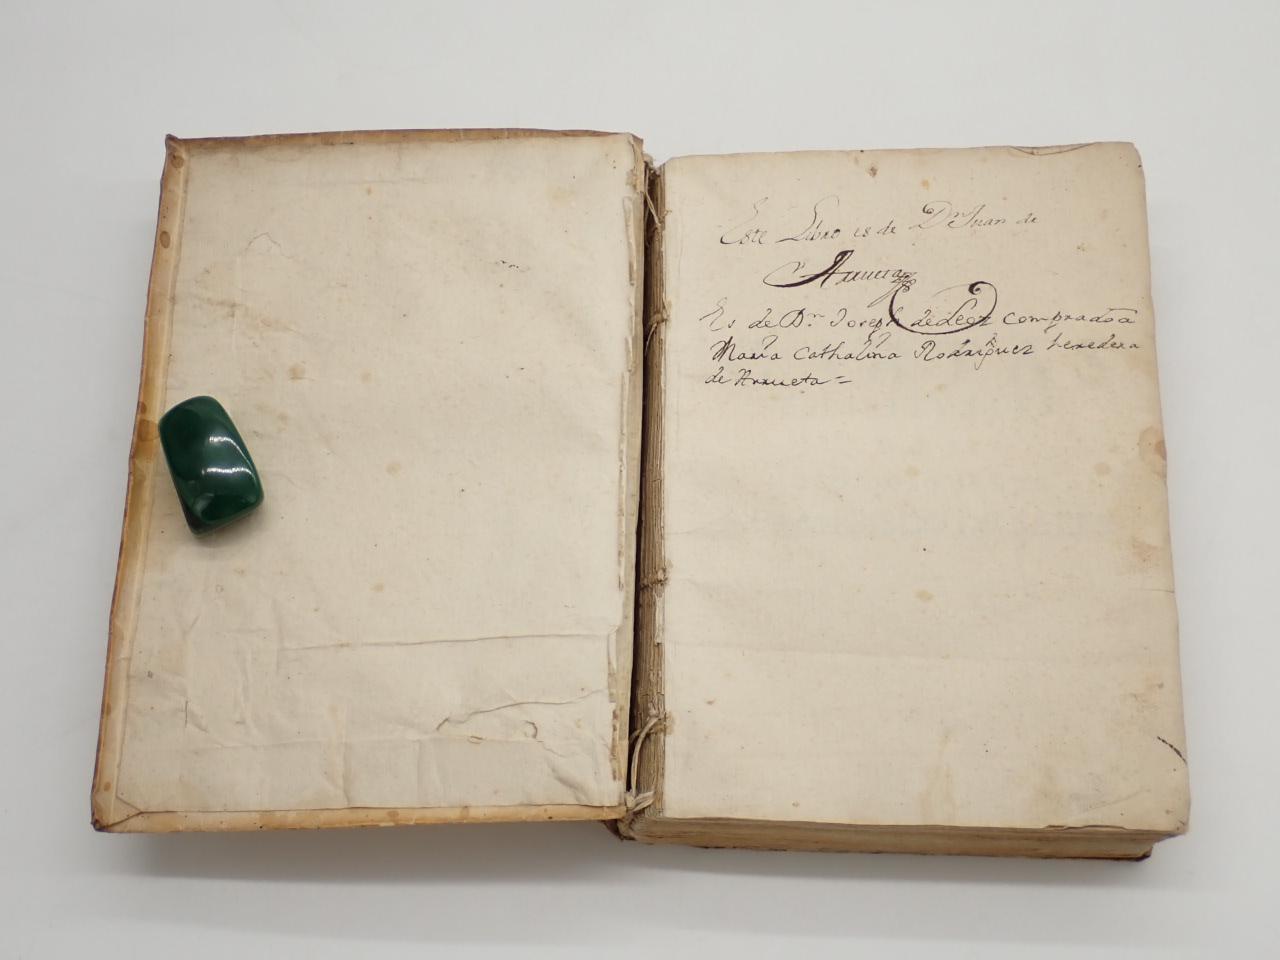 Este Libro es de Dn Juan de
Arrueta
Es de Dn Joseph de Leoz comprado a
Maria Cathalina Rodriguez heredera
de Arrueta =